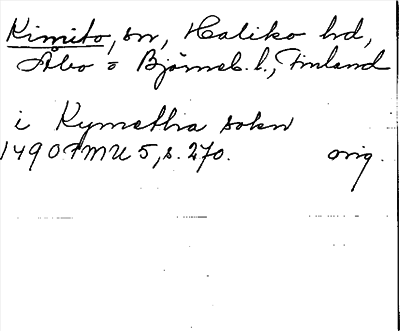 Kimito, sn, Haliko hd,
Åbo o Björneb. l., Finland
i Kymetha sokn
1490 FMU 5, s. 270. orig.